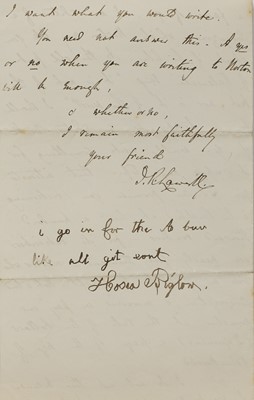 I want what you won't write.
You need not answer this. A yes
or no when you are writing to Norton
will be enough,
& whether or no,
I remain most faithfully
your friend
J. R. Lowell.
i go in for the A
like all git eout
Hosea Biglow.